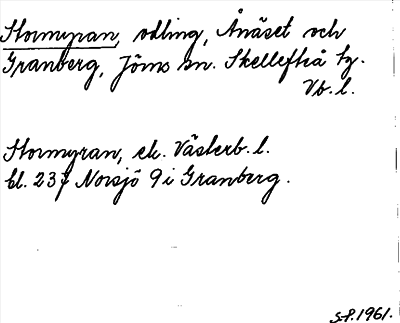 Stormyran, odling, Ånäset och
Granberg, Jörns sn. Skellefteå tg.
Vb. l.
Stormyran, ek. Västerb. l.
bl. 237 Norsjö 9 i Granberg.
S-P. 1961.